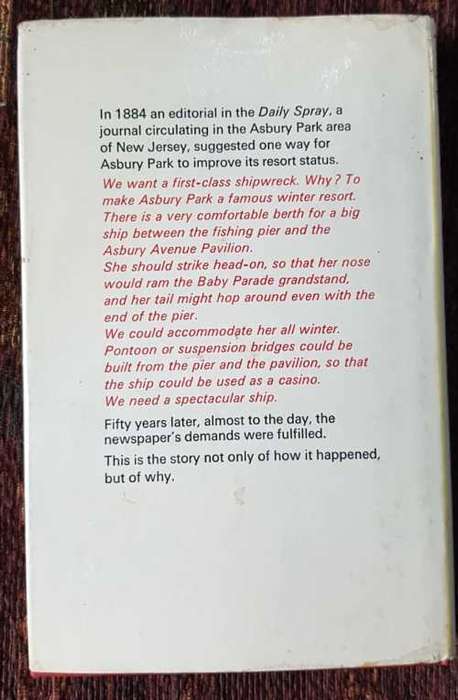 In 1884 an editorial in the Daily Spray, a
journal circulating in the Asbury Park area
of New Jersey, suggested one way for
Asbury Park to improve its resort status.
We want a first-class shipwreck. Why? To
make Asbury Park a famous winter resort.
There is a very comfortable berth for a big
ship between the fishing pier and the
Asbury Avenue Pavilion.
She should strike head-on, so that her nose
would ram the Baby Parade grandstand,
and her tail might hop around even with the
end of the pier.
We could accommodate her all winter.
Pontoon or suspension bridges could be
built from the pier and the pavilion, so that
the ship could be used as a casino.
We need a spectacular ship.
Fifty years later, almost to the day, the
newspaper's demands were fulfilled.
This is the story not only of how it happened,
but of why.